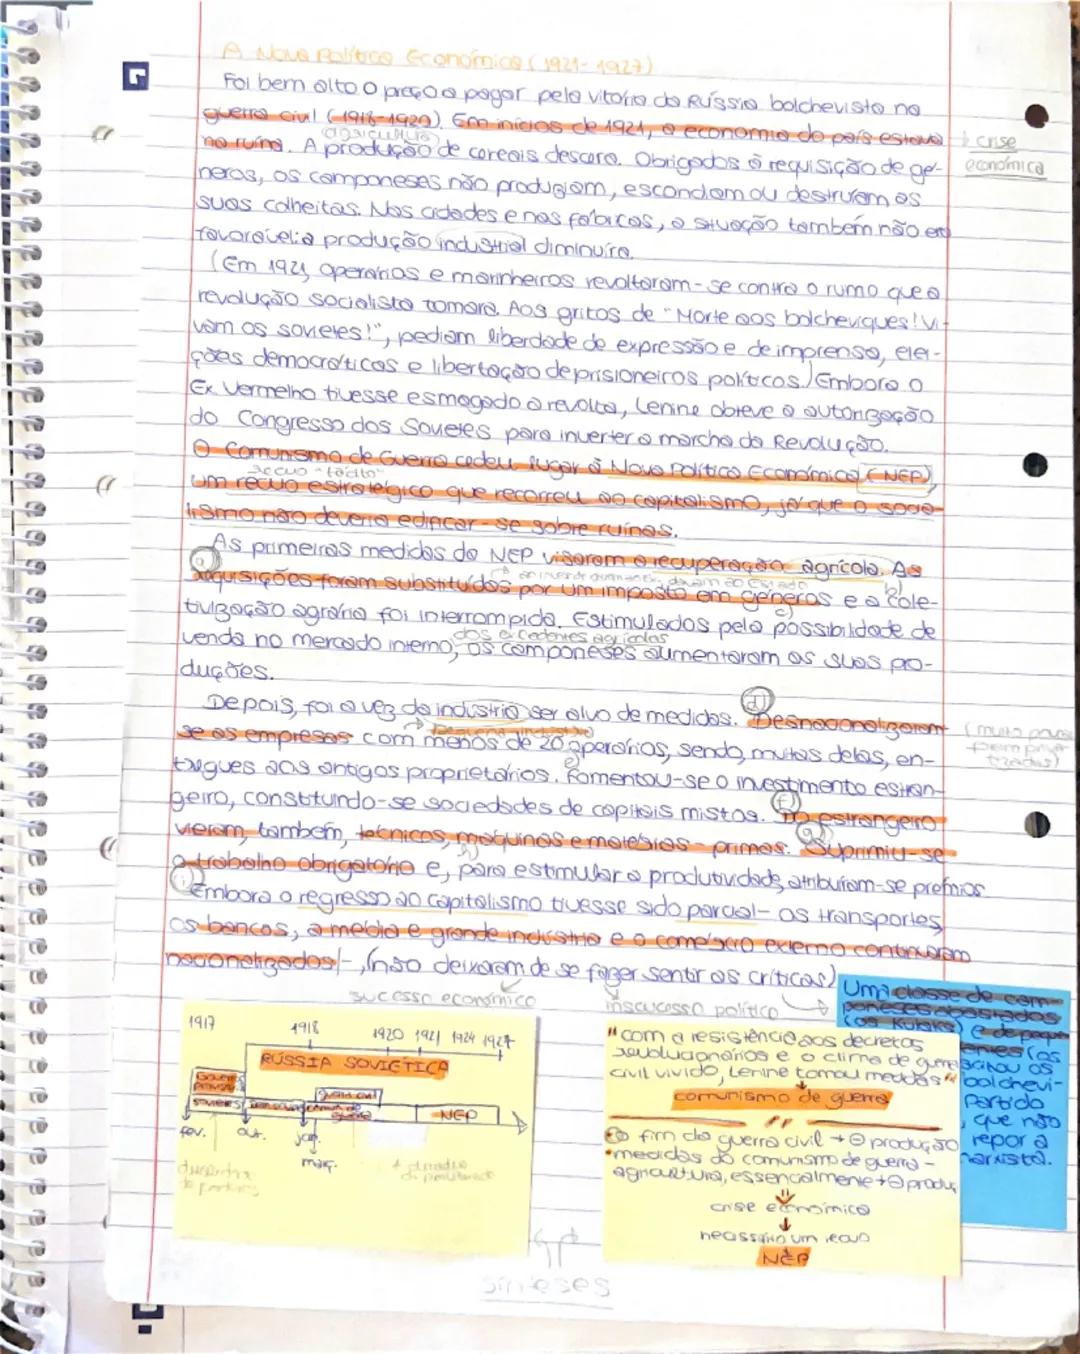 A Nova Política Económica (1921-1927)
Foi bem alto o preço a pagar pela vitória da Rússia bolchevista na
guerra civil (1918-1920). Em inícios de 1921, a economia do país estava
crise
económica
agricultura
na ruína. A produção de cereais descera. Obrigados à requisição de gé-
neros, os camponeses não produziam, escondiam ou destruíam as
suas colheitas. Nas cidades e nas fábricas, a situação também não era
favorável: a produção industrial diminuíra.
(Em 1921, operários e marinheiros revoltaram-se contra o rumo que a
revolução socialista tomara. Aos gritos de "Morte aos bolcheviques! Vi-
vam os sovietes!", pediam liberdade de expressão e de imprensa, elei-
ções democráticas e libertação de prisioneiros políticos.) Embora o
Ex. Vermelho tivesse esmagado a revolta, Lenine obteve a autorização
do Congresso dos Sovietes para inverter a marcha da Revolução.
O Comunismo de Guerra cedeu lugar à Nova Política Económica (NEP),
recuo "tácito"
um recuo estratégico que recorreu ao capitalismo, já que o socia-
lismo não deveria edificar-se sobre ruínas.
As primeiras medidas da NEP visaram a recuperação agrícola. As
a)
davam ao Estado
b)
requisições foram substituídas por um imposto em géneros e a cole-
c)
tivização agrária foi interrompida. Estimulados pela possibilidade de
dos excedentes agrícolas
venda no mercado interno, os camponeses aumentaram as suas pro-
duções.
d)
Depois, foi a vez da indústria ser alvo de medidas. Desnacionalizaram-
pequena indústria
se as empresas com menos de 20 operários, sendo, muitas delas, en-
e)
tregues aos antigos proprietários. Fomentou-se o investimento estran-
f)
geiro, constituindo-se sociedades de capitais mistos. Do estrangeiro
g)
vieram, também, técnicos, máquinas e matérias-primas. Suprimiu-se
h)
o trabalho obrigatório e, para estimular a produtividade, atribuíram-se prémios.
i)
Embora o regresso ao capitalismo tivesse sido parcial - os transportes,
os bancos, a média e grande indústria e o comércio externo continuaram
nacionalizados -, (não deixaram de se fazer sentir as críticas)
sucesso económico
insucesso político
1917
1918
1920 1921 1924 1927
RÚSSIA SOVIÉTICA
guerra civil
NEP
fev.
out.
jan.
març.
"com a resistência aos decretos
revolucionários e o clima de guerra
civil vivido, Lenine tomou medidas"
comunismo de guerra
"
fim da guerra civil → ⊖ produção
• medidas do comunismo de guerra -
agricultura, essencialmente → ⊖ produç
crise económica
necessário um recuo
NEP
Uma classe de cam-
poneses abastados
(os Kulaks) e de peque
(os
os
bolchevi-
Partido
, que não
repor a
marxista.
sínteses